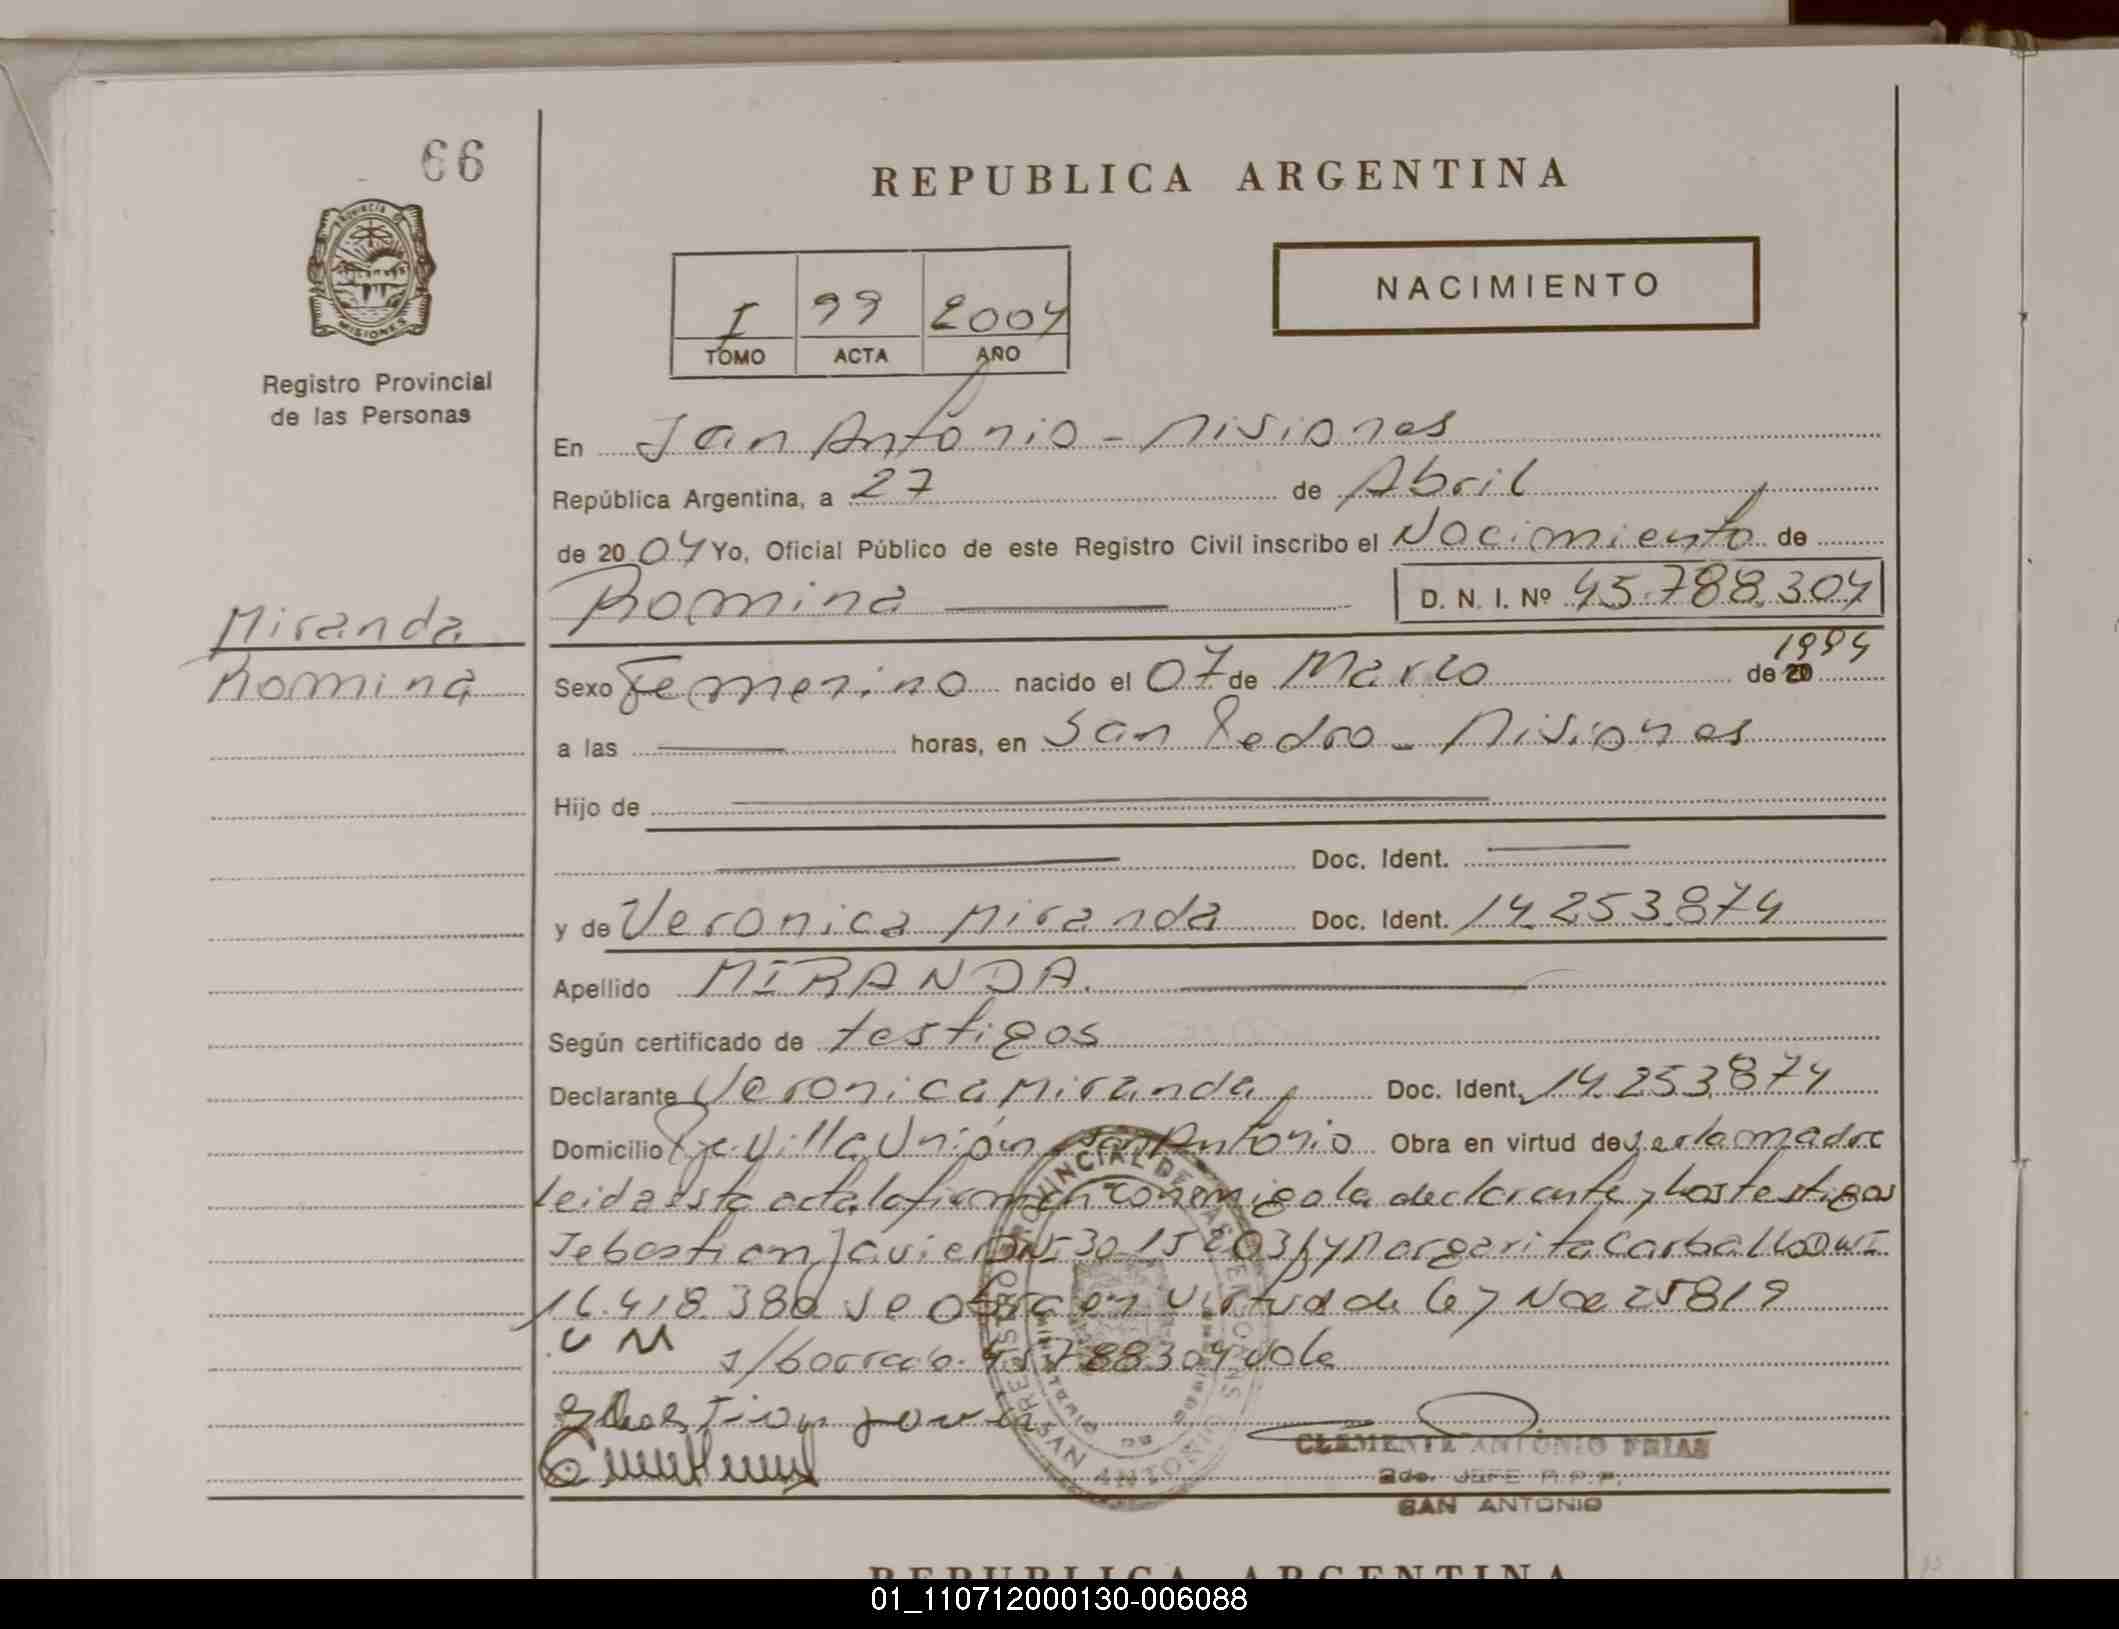 66
REPUBLICA ARGENTINA
PROVINCIA D
MISIONES
Registro Provincial
de las Personas
I 99 2004
TOMO ACTA AÑO
NACIMIENTO
En San Antonio - Misiones
República Argentina, a 27 de Abril
de 2004 Yo, Oficial Público de este Registro Civil inscribo el Nacimiento de
Romina D. N. I. Nº 45.788.304
Miranda
Romina
Sexo Femenino nacido el 07 de Marzo de 20 1994
a las horas, en San Pedro - Misiones
Hijo de
Doc. Ident.
y de Veronica Miranda Doc. Ident. 14.253.874
Apellido MIRANDA.
Según certificado de testigos
Declarante Veronica Miranda Doc. Ident. 14.253.874
Domicilio Pje Villa Unión San Antonio Obra en virtud de ser la madre
Leida esta acta la firman conmigo la declarante y los testigos
Sebastian Javier DNI 30 15 y Margarita Carballo DNI
16.418.380 se obra en virtud de Ley Nae 25819
V M s/borrado. 45788304 vale
CLEMENTE ANTONIO FRIAS
2do. JEFE R.P.P.
SAN ANTONIO
REPUBLICA ARGENTINA
01_110712000130-006088